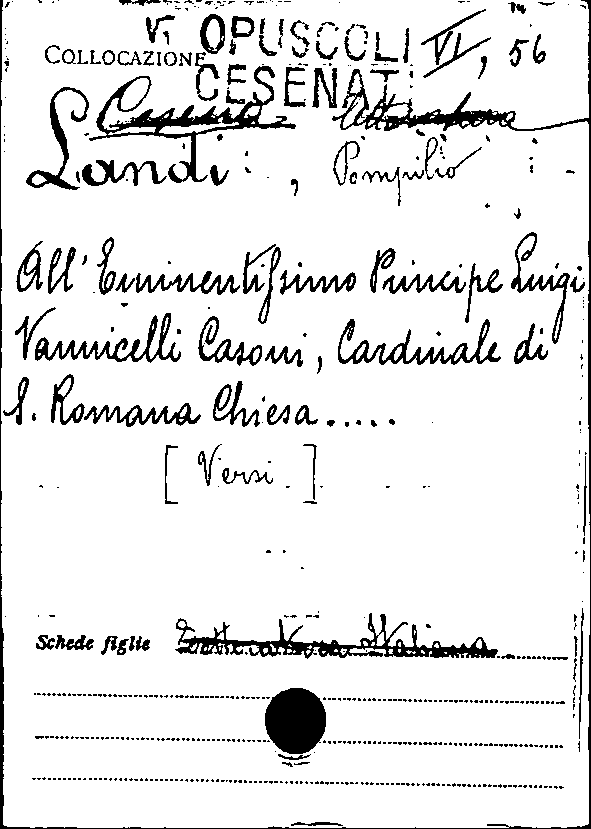 V. OPUSCOLI VI, 56
COLLOCAZIONE
CESENATI
Cesena letteratura
Landi, Pompilio
All' Eminentissimo Principe Luigi
Vannicelli Casoni, Cardinale di
S. Romana Chiesa.....
[Versi]
Schede figlie Letteratura Italiana